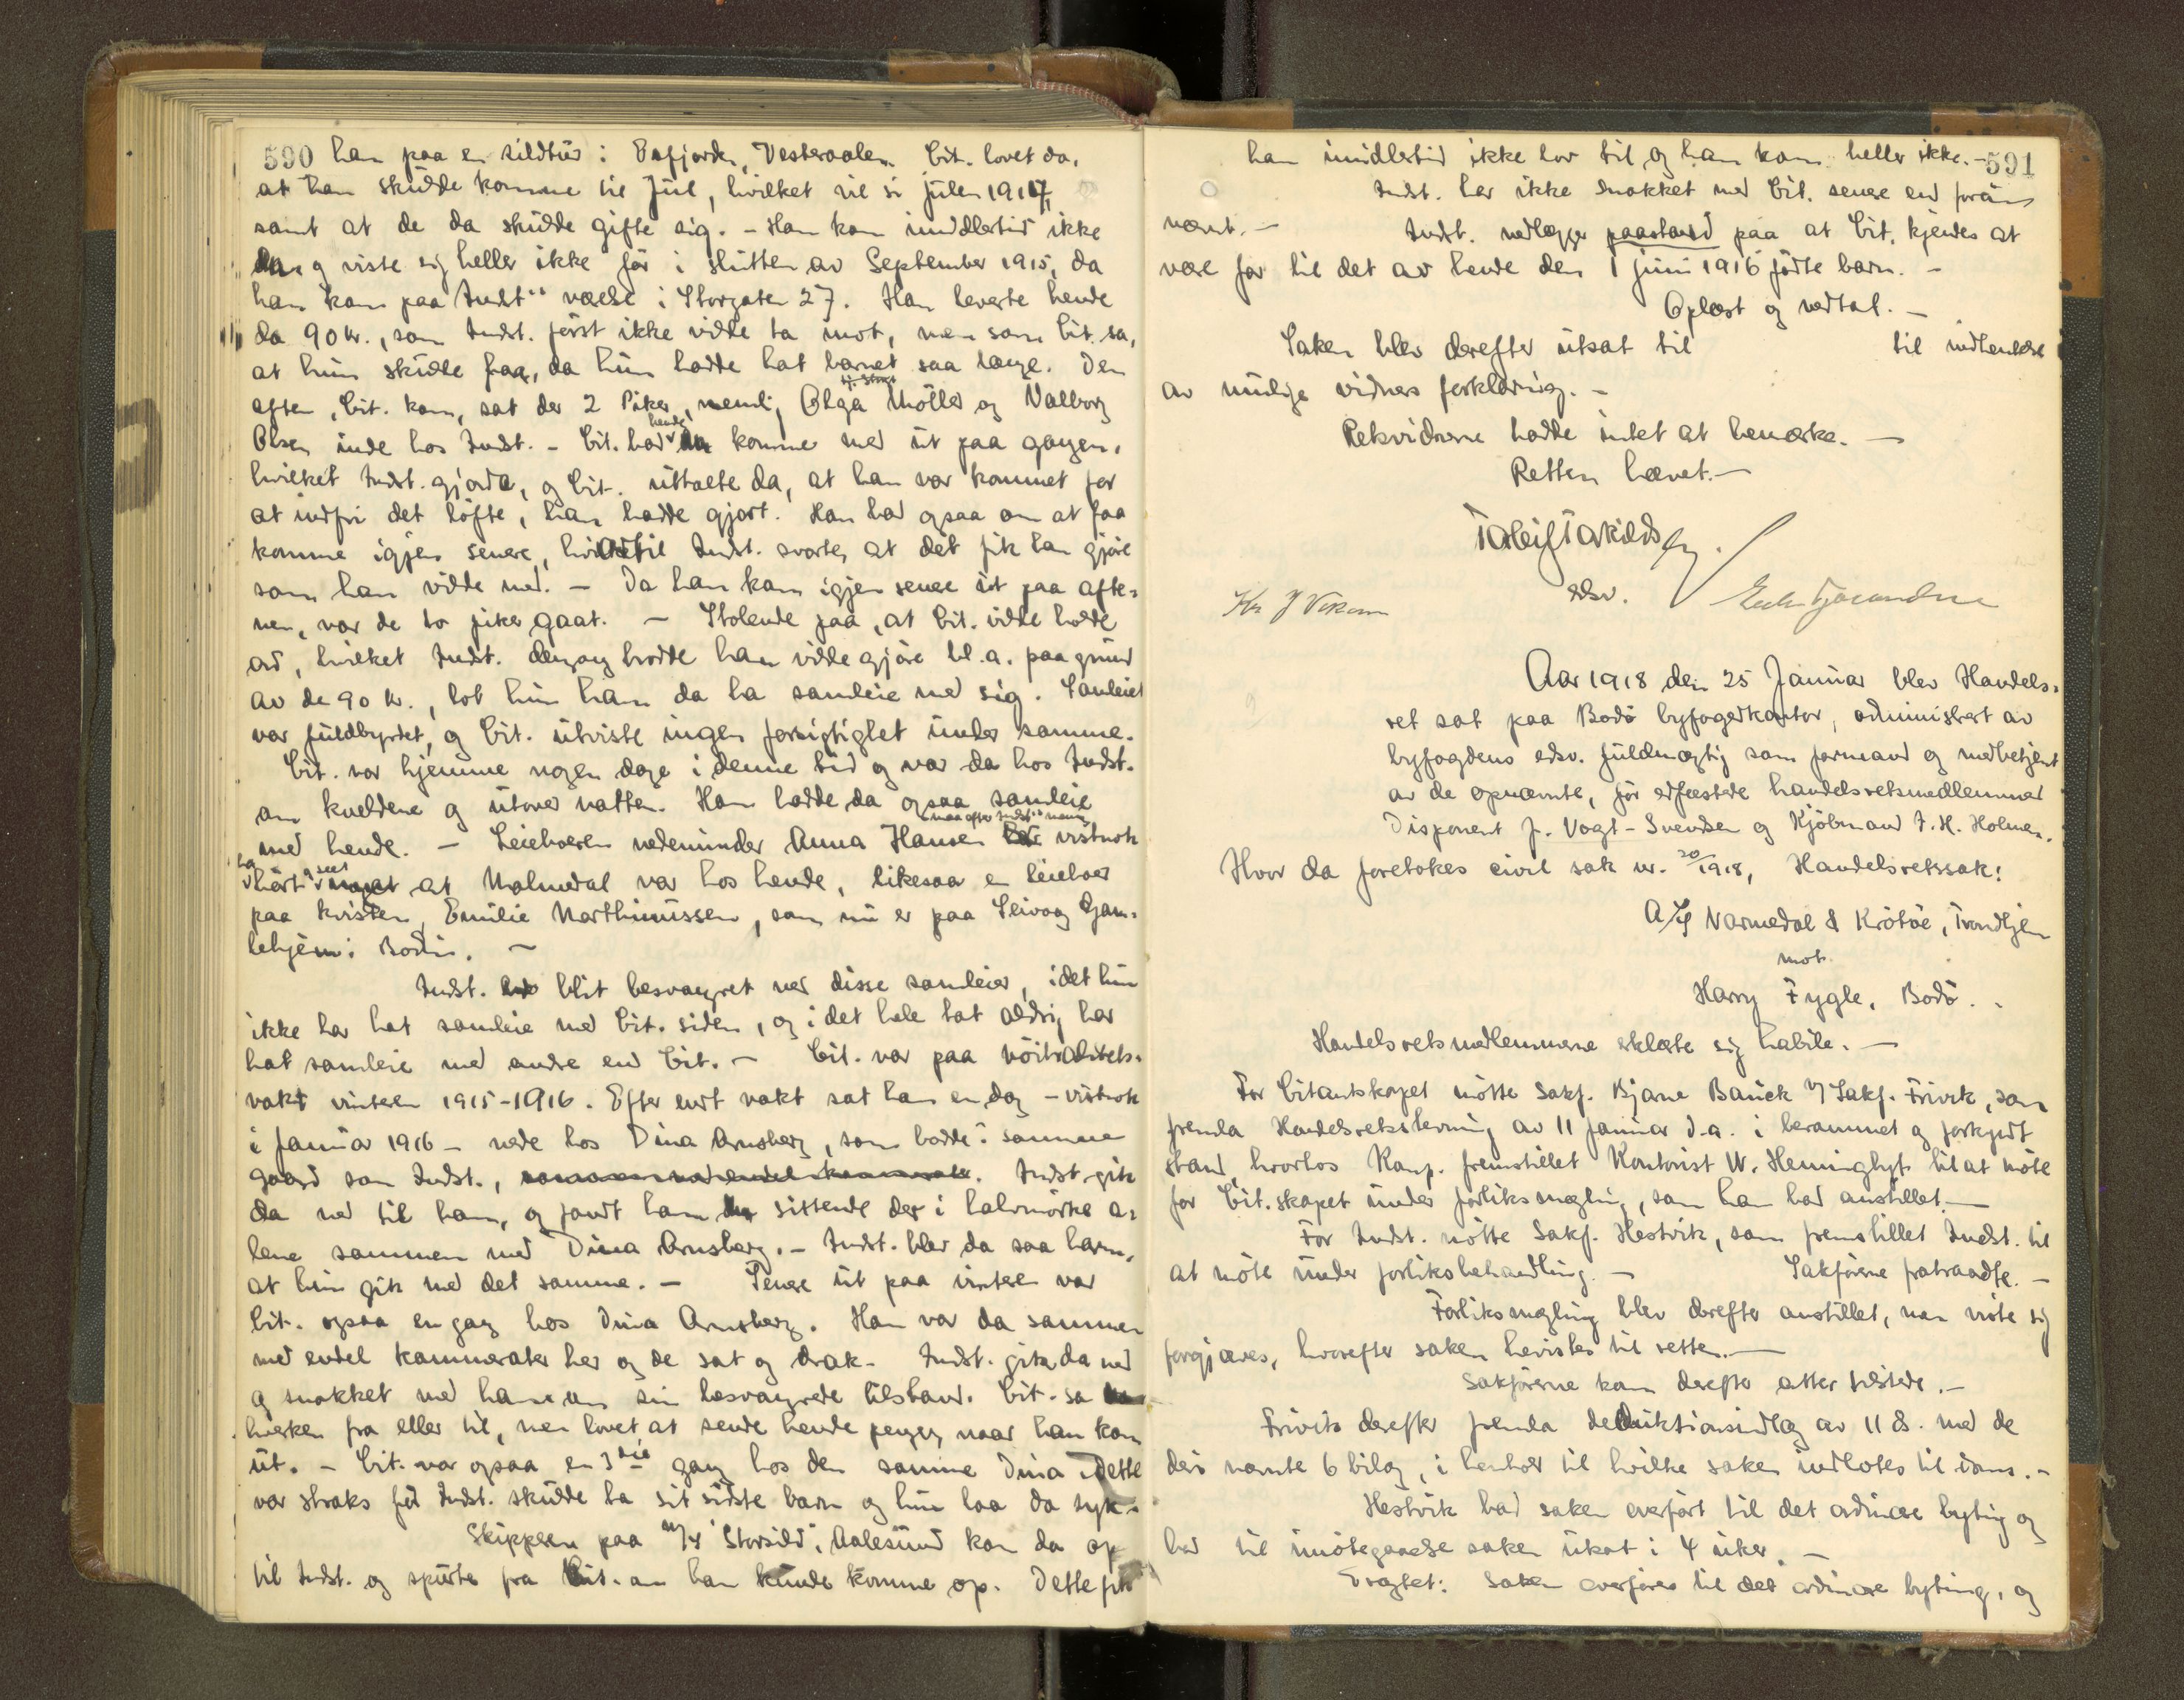 590 han paa en sildtur i Eidsfjorden, Vesteraalen. Cit. lovet da,
at han skulde komme til Jul, hvilket vil si julen 1914,
samt at de da skulde gifte sig. – Han kom imidlertid ikke
da og viste sig heller ikke før i slutten av September 1915, da
han kom paa Indst.s værelse i Storgaten 27. Han leverte hende
da 90 kr., som Indst. først ikke vilde ta imot, men som Cit. sa,
at hun skulde faa, da hun hadde hat barnet saa længe. Den
aften, Cit. kom, sat der 2 Piker, nemlig Olga Møller og Valborg
Olsen inde hos Indst. – Cit. bad hende komme med ut paa gangen,
hvilket Indst. gjorde, og Cit. uttalte da, at han var kommet for
at indfri det løfte, han hadde gjort. Han bad ogsaa om at faa
komme igjen senere, hvortil Indst. svarte, at det fik han gjøre
som han vilde med. – Da han kom igjen senere ut paa afte-
nen, var de to piker gaat. – Stolende paa, at Cit. vilde holde
ord, hvilket Indst. dengang trodde han vilde gjøre bl.a. paa grund
av de 90 kr., lot hun ham da ha samleie med sig. Samleiet
var fuldbyrdet, og Cit. utviste ingen forsigtighet under samme.
Cit. var hjemme nogen dage i denne tid og var da hos Indst.
om kveldene og utover natten. Han hadde da ogsaa samleie
med hende. – Leieboeren nedenunder Anna Hansen maa efter Indst.s mening vistnok
ha hørt og seet at Malmedal var hos hende, likesaa en leieboer
paa kvisten, Emilie Marthinussen, som nu er paa Seivaag Gam-
lehjem i Bodin. –
Indst. blit besvangret ved disse samleier, idet hun
ikke har hat samleie med Cit. siden, og i det hele tat aldrig har
hat samleie med andre end Cit. – Cit. var paa nøitralitets-
vakt vinteren 1915-1916. Efter endt vakt sat han en dag – vistnok
i Januar 1916 – nede hos Dina Arnsberg, som bodde i samme
gaard som Indst., Indst. gik
da ned til ham, og fandt ham sittende der i halvmørke a-
lene sammen med Dina Arnsberg. – Indst. blev da saa harm,
at hun gik med det samme. – Senere ut paa vinteren var
Cit. ogsaa engang hos Dina Arnsberg. Han var da sammen
med endel kammerater her og de sat og drak. Indst. gik da ned
og snakket med ham om sin besvangrede tilstand. Cit. sa
hverken fra eller til, men lovet at sende hende penger naar han kom
ut. – Cit. var ogsaa en 3die gang hos den samme Dina. Dette
var straks før Indst. skulde ha sit sidste barn og hun laa da syk.
Skipperen paa M/K "Storsild", Aalesund kom da op
til Indst. og spurte fra Cit. om han kunde komme op. Dette fik
591
han imidlertid ikke lov til og han kom heller ikke. –
Indst. har ikke snakket med Cit. senere end foran
nævnt. – Indst. nedlægger paastand paa at Cit. kjendes at
være far til det av hende den 1 juni 1916 fødte barn. –
Oplæst og vedtat. –
Saken blev derefter utsat til til indhentelse
av mulige vidners forklaring. –
Retsvidnerne hadde intet at bemerke. –
Retten hævet. –
edsv.
Aar 1918 den 25 Januar blev Handels-
ret sat paa Bodø byfogedkontor, administrert av
byfogdens edsv. fuldmægtig som formand og medbetjent
av de opnævnte, før edfæstede handelsretsmedlemmer
Disponent J. Vogt-Svendsen og Kjøbmand J. H. Holmen.
Hvor da foretokes civil sak nr. 20/1918, Handelsretssak:
A/S Varmedal & Krötöe, Trondhjem
mot
Harry Fygle, Bodø.
Handelsretsmedlemmene erklærte sig habile. –
For Citantskapet møtte Sakf. Bjarne Bauck v/ Sakf. Frivik, som
fremla Handelsretsstevning av 11 januar d.a. i berammet og forkyndt
stand, hvorhos Komp. fremstillet Kontorist W. Heminghyt til at møte
for Cit.skapet under forliksmægling, som han bad anstillet. –
For Indst. møtte Sakf. Hestvik, som fremstillet Indst. til
at møte under forliksbehandling. – Sakførerne fratraadte. –
Forliksmægling blev derefter anstillet, men viste sig
forgjæves, hvorefter saken henvistes til retten. –
Sakførerne kom derefter atter tilstede. –
Frivik derefter fremla deduktionsindlæg av 11 ds. med de
deri nævnte 6 bilag, i henhold til hvilke saken indlotes til doms. –
Hestvik bad saken overført til det ordinære byting og
bad til imøtegaaelse saken utsat i 4 uker. –
Eragtet: Saken overføres til det ordinære byting, og